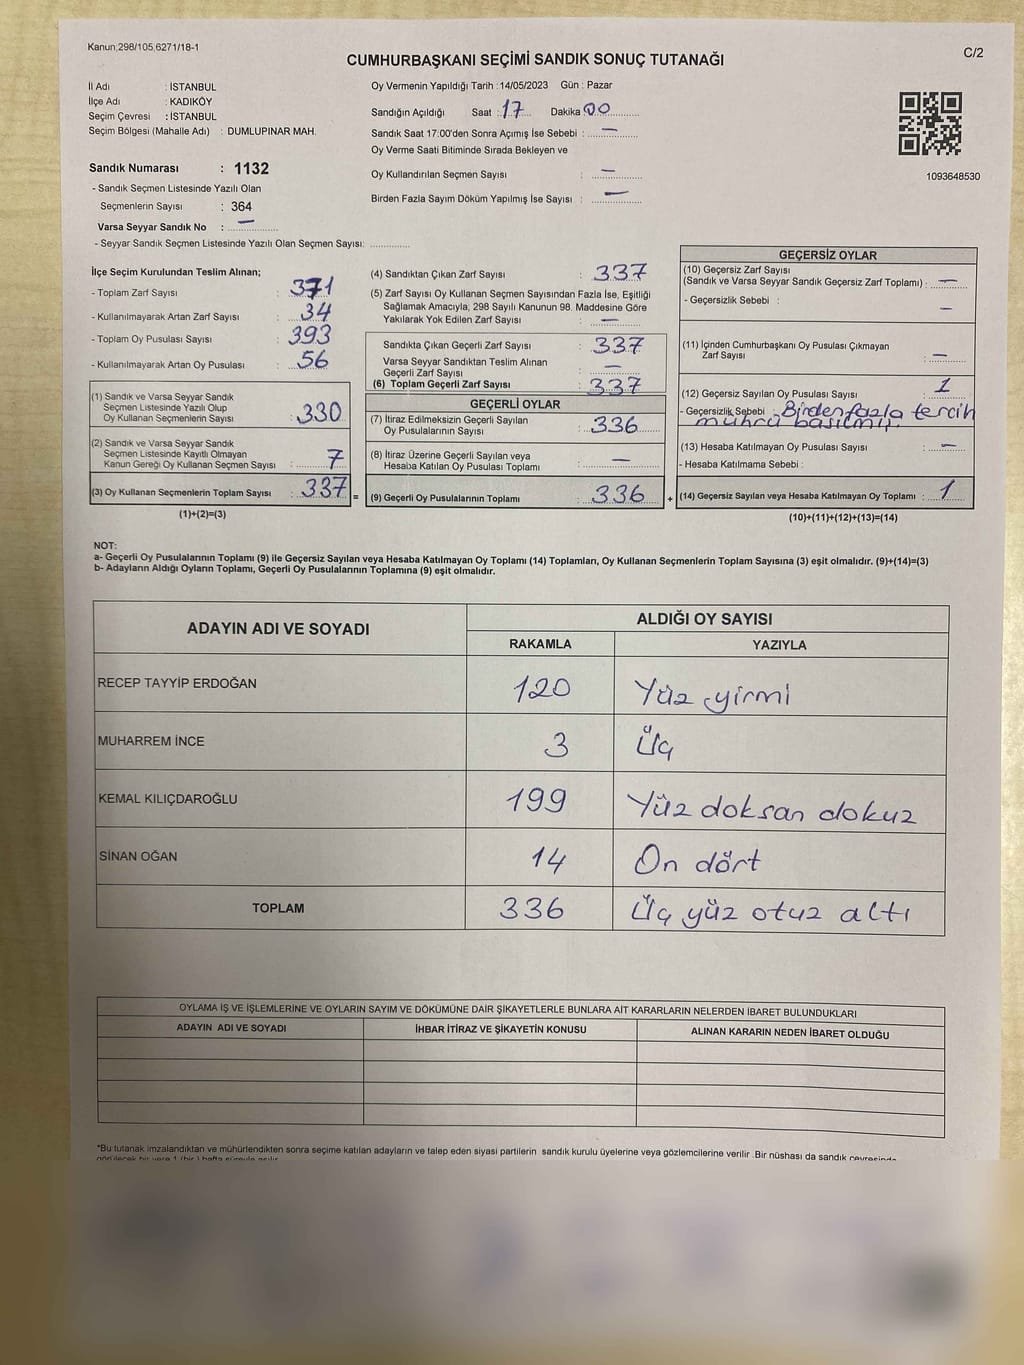 Kanun,298/105,6271/18-1
C/2
CUMHURBAŞKANI SEÇİMİ SANDIK SONUÇ TUTANAĞI
İl Adı : İSTANBUL
İlçe Adı : KADIKÖY
Seçim Çevresi : İSTANBUL
Seçim Bölgesi (Mahalle Adı) : DUMLUPINAR MAH.
Oy Vermenin Yapıldığı Tarih :14/05/2023 Gün : Pazar
Sandığın Açıldığı Saat : 17 Dakika 00
Sandık Saat 17:00'den Sonra Açımış İse Sebebi : —
Oy Verme Saati Bitiminde Sırada Bekleyen ve
Oy Kullandırılan Seçmen Sayısı : —
Birden Fazla Sayım Döküm Yapılmış İse Sayısı : —
1093648530
Sandık Numarası : 1132
- Sandık Seçmen Listesinde Yazılı Olan
Seçmenlerin Sayısı : 364
Varsa Seyyar Sandık No : —
- Seyyar Sandık Seçmen Listesinde Yazılı Olan Seçmen Sayısı:
İlçe Seçim Kurulundan Teslim Alınan;
- Toplam Zarf Sayısı : 371
- Kullanılmayarak Artan Zarf Sayısı : 34
- Toplam Oy Pusulası Sayısı : 393
- Kullanılmayarak Artan Oy Pusulası : 56
(1) Sandık ve Varsa Seyyar Sandık
Seçmen Listesinde Yazılı Olup
Oy Kullanan Seçmenlerin Sayısı : 330
(2) Sandık ve Varsa Seyyar Sandık
Seçmen Listesinde Kayıtlı Olmayan
Kanun Gereği Oy Kullanan Seçmen Sayısı : 7
(3) Oy Kullanan Seçmenlerin Toplam Sayısı : 337 =
(1)+(2)=(3)
(4) Sandıktan Çıkan Zarf Sayısı : 337
(5) Zarf Sayısı Oy Kullanan Seçmen Sayısından Fazla İse, Eşitliği
Sağlamak Amacıyla, 298 Sayılı Kanunun 98. Maddesine Göre
Yakılarak Yok Edilen Zarf Sayısı : —
Sandıkta Çıkan Geçerli Zarf Sayısı : 337
Varsa Seyyar Sandıktan Teslim Alınan
Geçerli Zarf Sayısı : —
(6) Toplam Geçerli Zarf Sayısı : 337
GEÇERLİ OYLAR
(7) İtiraz Edilmeksizin Geçerli Sayılan
Oy Pusulalarının Sayısı : 336
(8) İtiraz Üzerine Geçerli Sayılan veya
Hesaba Katılan Oy Pusulası Toplamı : —
(9) Geçerli Oy Pusulalarının Toplamı : 336 +
GEÇERSİZ OYLAR
(10) Geçersiz Zarf Sayısı
(Sandık ve Varsa Seyyar Sandık Geçersiz Zarf Toplamı) : —
- Geçersizlik Sebebi : —
(11) İçinden Cumhurbaşkanı Oy Pusulası Çıkmayan
Zarf Sayısı : —
(12) Geçersiz Sayılan Oy Pusulası Sayısı : 1
- Geçersizlik Sebebi : Birden fazla tercih
mührü basılmış.
(13) Hesaba Katılmayan Oy Pusulası Sayısı : —
- Hesaba Katılmama Sebebi :
(14) Geçersiz Sayılan veya Hesaba Katılmayan Oy Toplamı : 1
(10)+(11)+(12)+(13)=(14)
NOT:
a- Geçerli Oy Pusulalarının Toplamı (9) ile Geçersiz Sayılan veya Hesaba Katılmayan Oy Toplamı (14) Toplamları, Oy Kullanan Seçmenlerin Toplam Sayısına (3) eşit olmalıdır. (9)+(14)=(3)
b- Adayların Aldığı Oyların Toplamı, Geçerli Oy Pusulalarının Toplamına (9) eşit olmalıdır.
ADAYIN ADI VE SOYADI
ALDIĞI OY SAYISI
RAKAMLA YAZIYLA
RECEP TAYYİP ERDOĞAN 120 Yüz yirmi
MUHARREM İNCE 3 Üç
KEMAL KILIÇDAROĞLU 199 Yüz doksan dokuz
SİNAN OĞAN 14 On dört
TOPLAM 336 Üç yüz otuz altı
OYLAMA İŞ VE İŞLEMLERİNE VE OYLARIN SAYIM VE DÖKÜMÜNE DAİR ŞİKAYETLERLE BUNLARA AİT KARARLARIN NELERDEN İBARET BULUNDUKLARI
ADAYIN ADI VE SOYADI İHBAR İTİRAZ VE ŞİKAYETİN KONUSU ALINAN KARARIN NEDEN İBARET OLDUĞU
*Bu tutanak imzalandıktan ve mühürlendikten sonra seçime katılan adayların ve talep eden siyasi partilerin sandık kurulu üyelerine veya gözlemcilerine verilir .Bir nüshası da sandık çevresinde